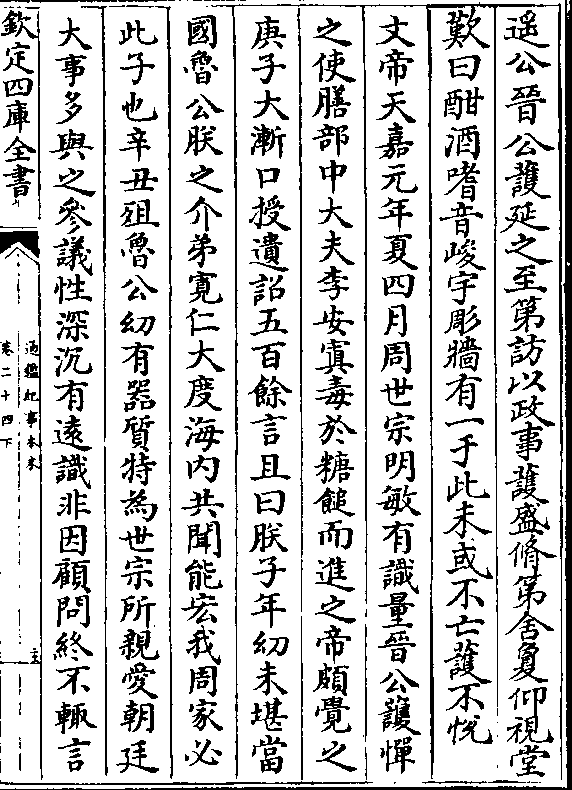 遥公晉公護延之至第訪以政事護盛脩第舍夐仰視堂
歎曰酣酒嗜音峻宇彫牆有一于此未或不亡護不悅
文帝天嘉元年夏四月周世宗明敏有識量晉公護憚
之使膳部中大夫李安寘毒於糖䭔而進之帝頗覺之
庚子大漸口授遺詔五百餘言且曰朕子年幼未堪當
國魯公朕之介弟寬仁大度海内共聞能宏我周家必
此子也辛丑殂魯公幼有器質特為世宗所親愛朝廷
大事多與之參議性深沉有遠識非因顧問終不輒言
欽定四庫全書
通鑑紀事本末
卷二十四下